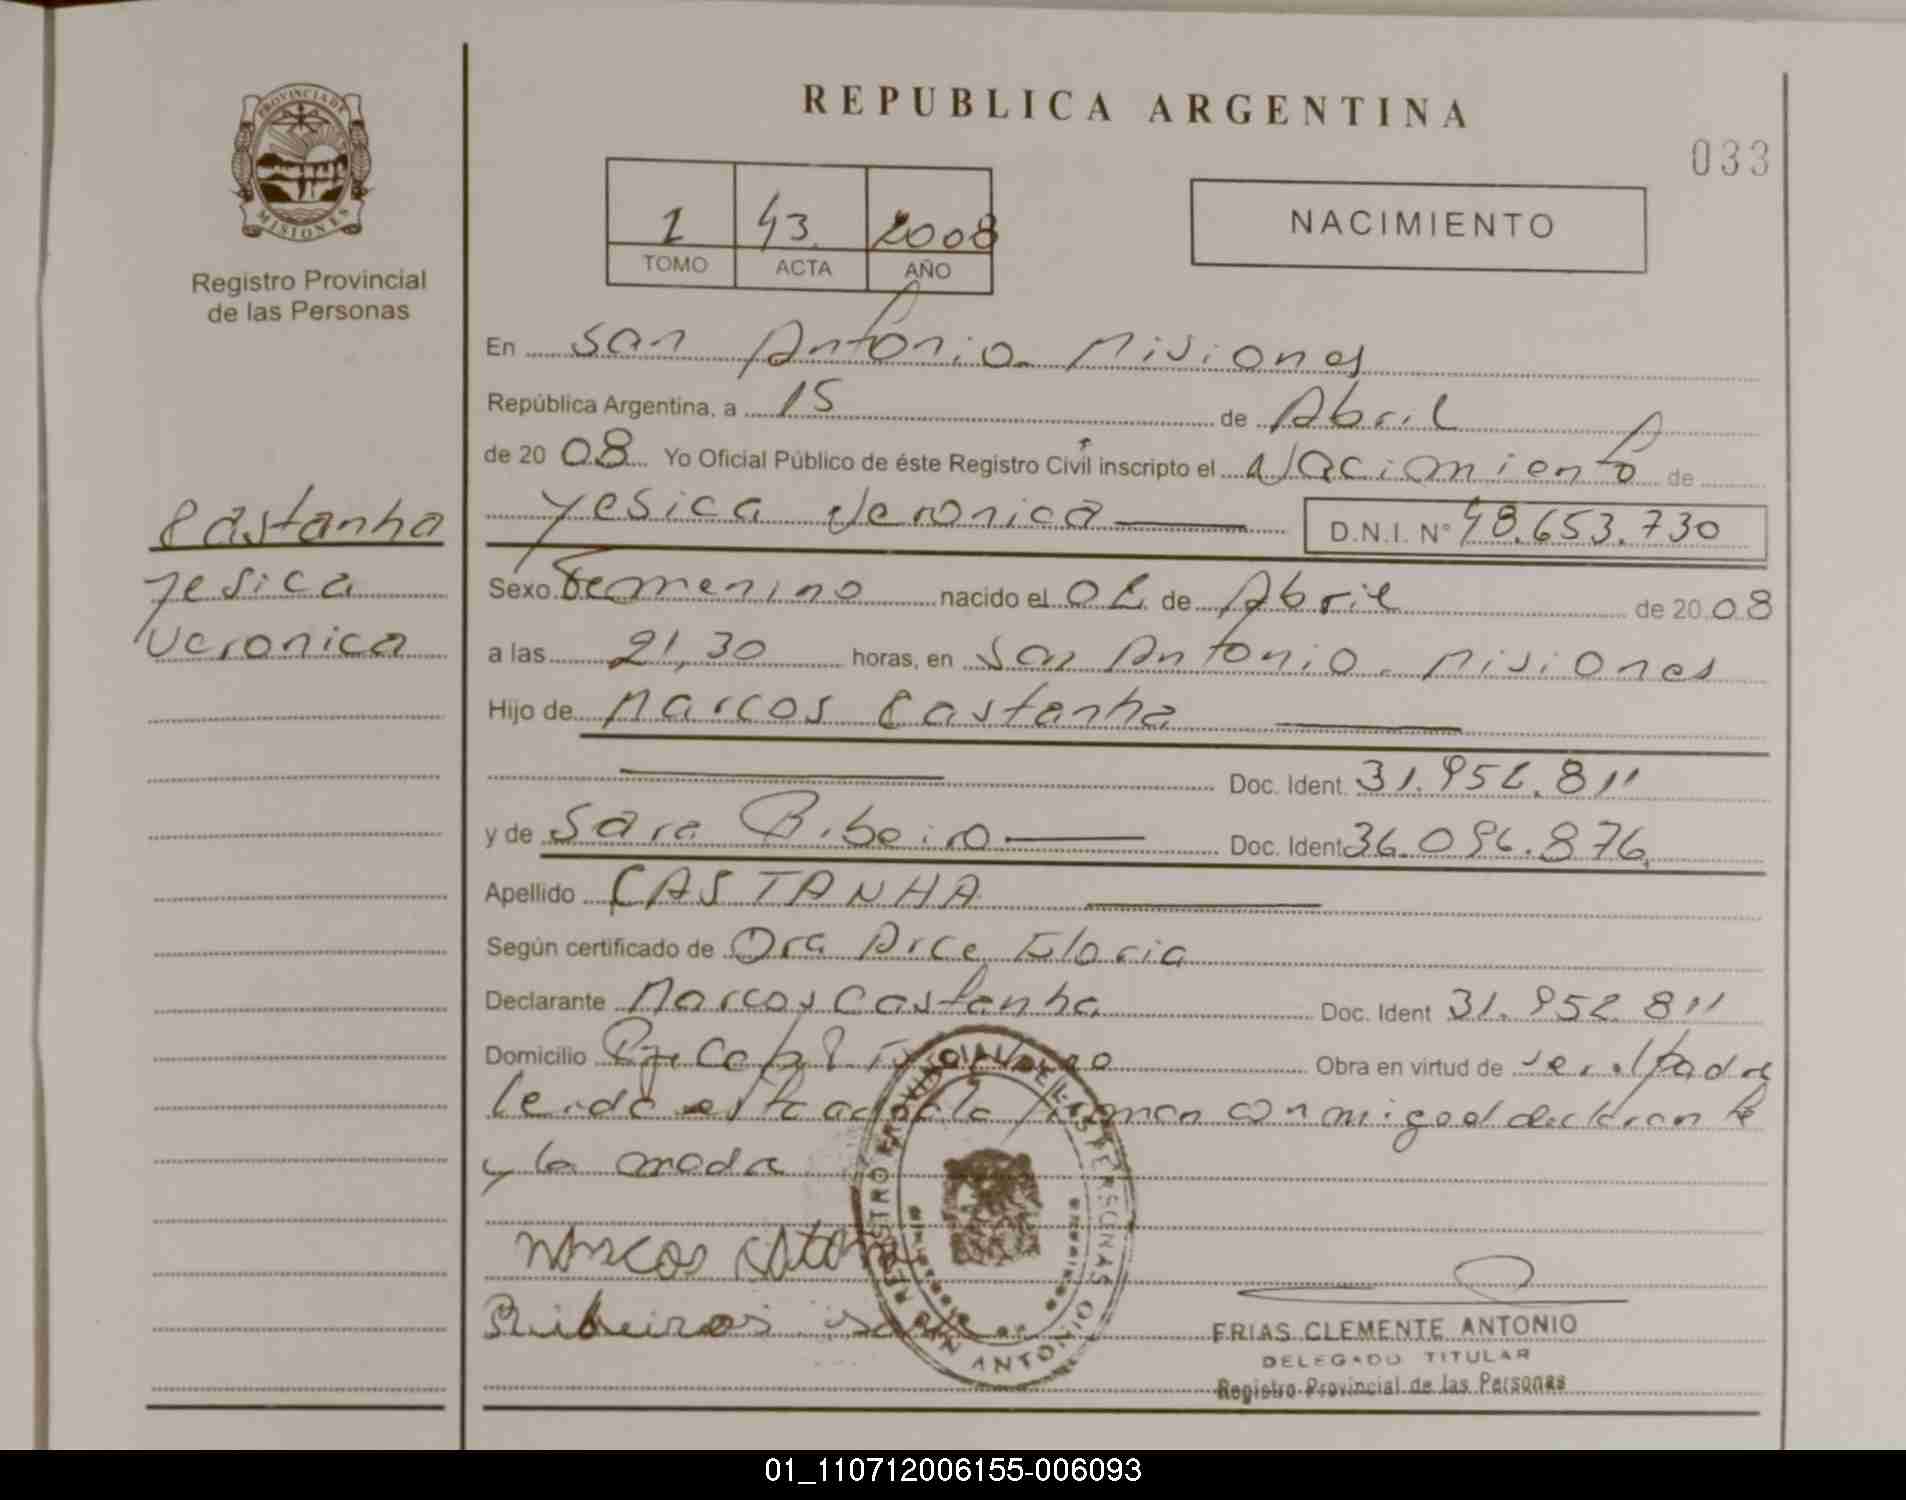 REPUBLICA ARGENTINA
033
PROVINCIA DE
MISIONES
Registro Provincial
de las Personas
1 43. 2008
TOMO ACTA AÑO
NACIMIENTO
En San Antonio. Misiones
República Argentina, a 15 de Abril
de 20 08 Yo Oficial Público de éste Registro Civil inscripto el Nacimiento de
Yesica Veronica D.N.I. Nº 48.653.730
Castanha
Yesica
Veronica
Sexo Femenino nacido el 02 de Abril de 20 08
a las 21,30 horas, en San Antonio. Misiones
Hijo de Marcos Castanha
Doc. Ident. 31.952.811
y de Sara Ribeiro Doc. Ident 36.096.876
Apellido CASTANHA
Según certificado de Dra Arce Gloria
Declarante Marcos Castanha Doc. Ident 31.952.811
Domicilio Pje Obra en virtud de ser el padre
leida el acta la firman conmigo el declarante
y la madre
Marcos
Ribeiros
REGISTRO PROVINCIAL DE LAS PERSONAS
SAN ANTONIO
FRIAS CLEMENTE ANTONIO
DELEGADO TITULAR
Registro Provincial de las Personas
01_110712006155-006093